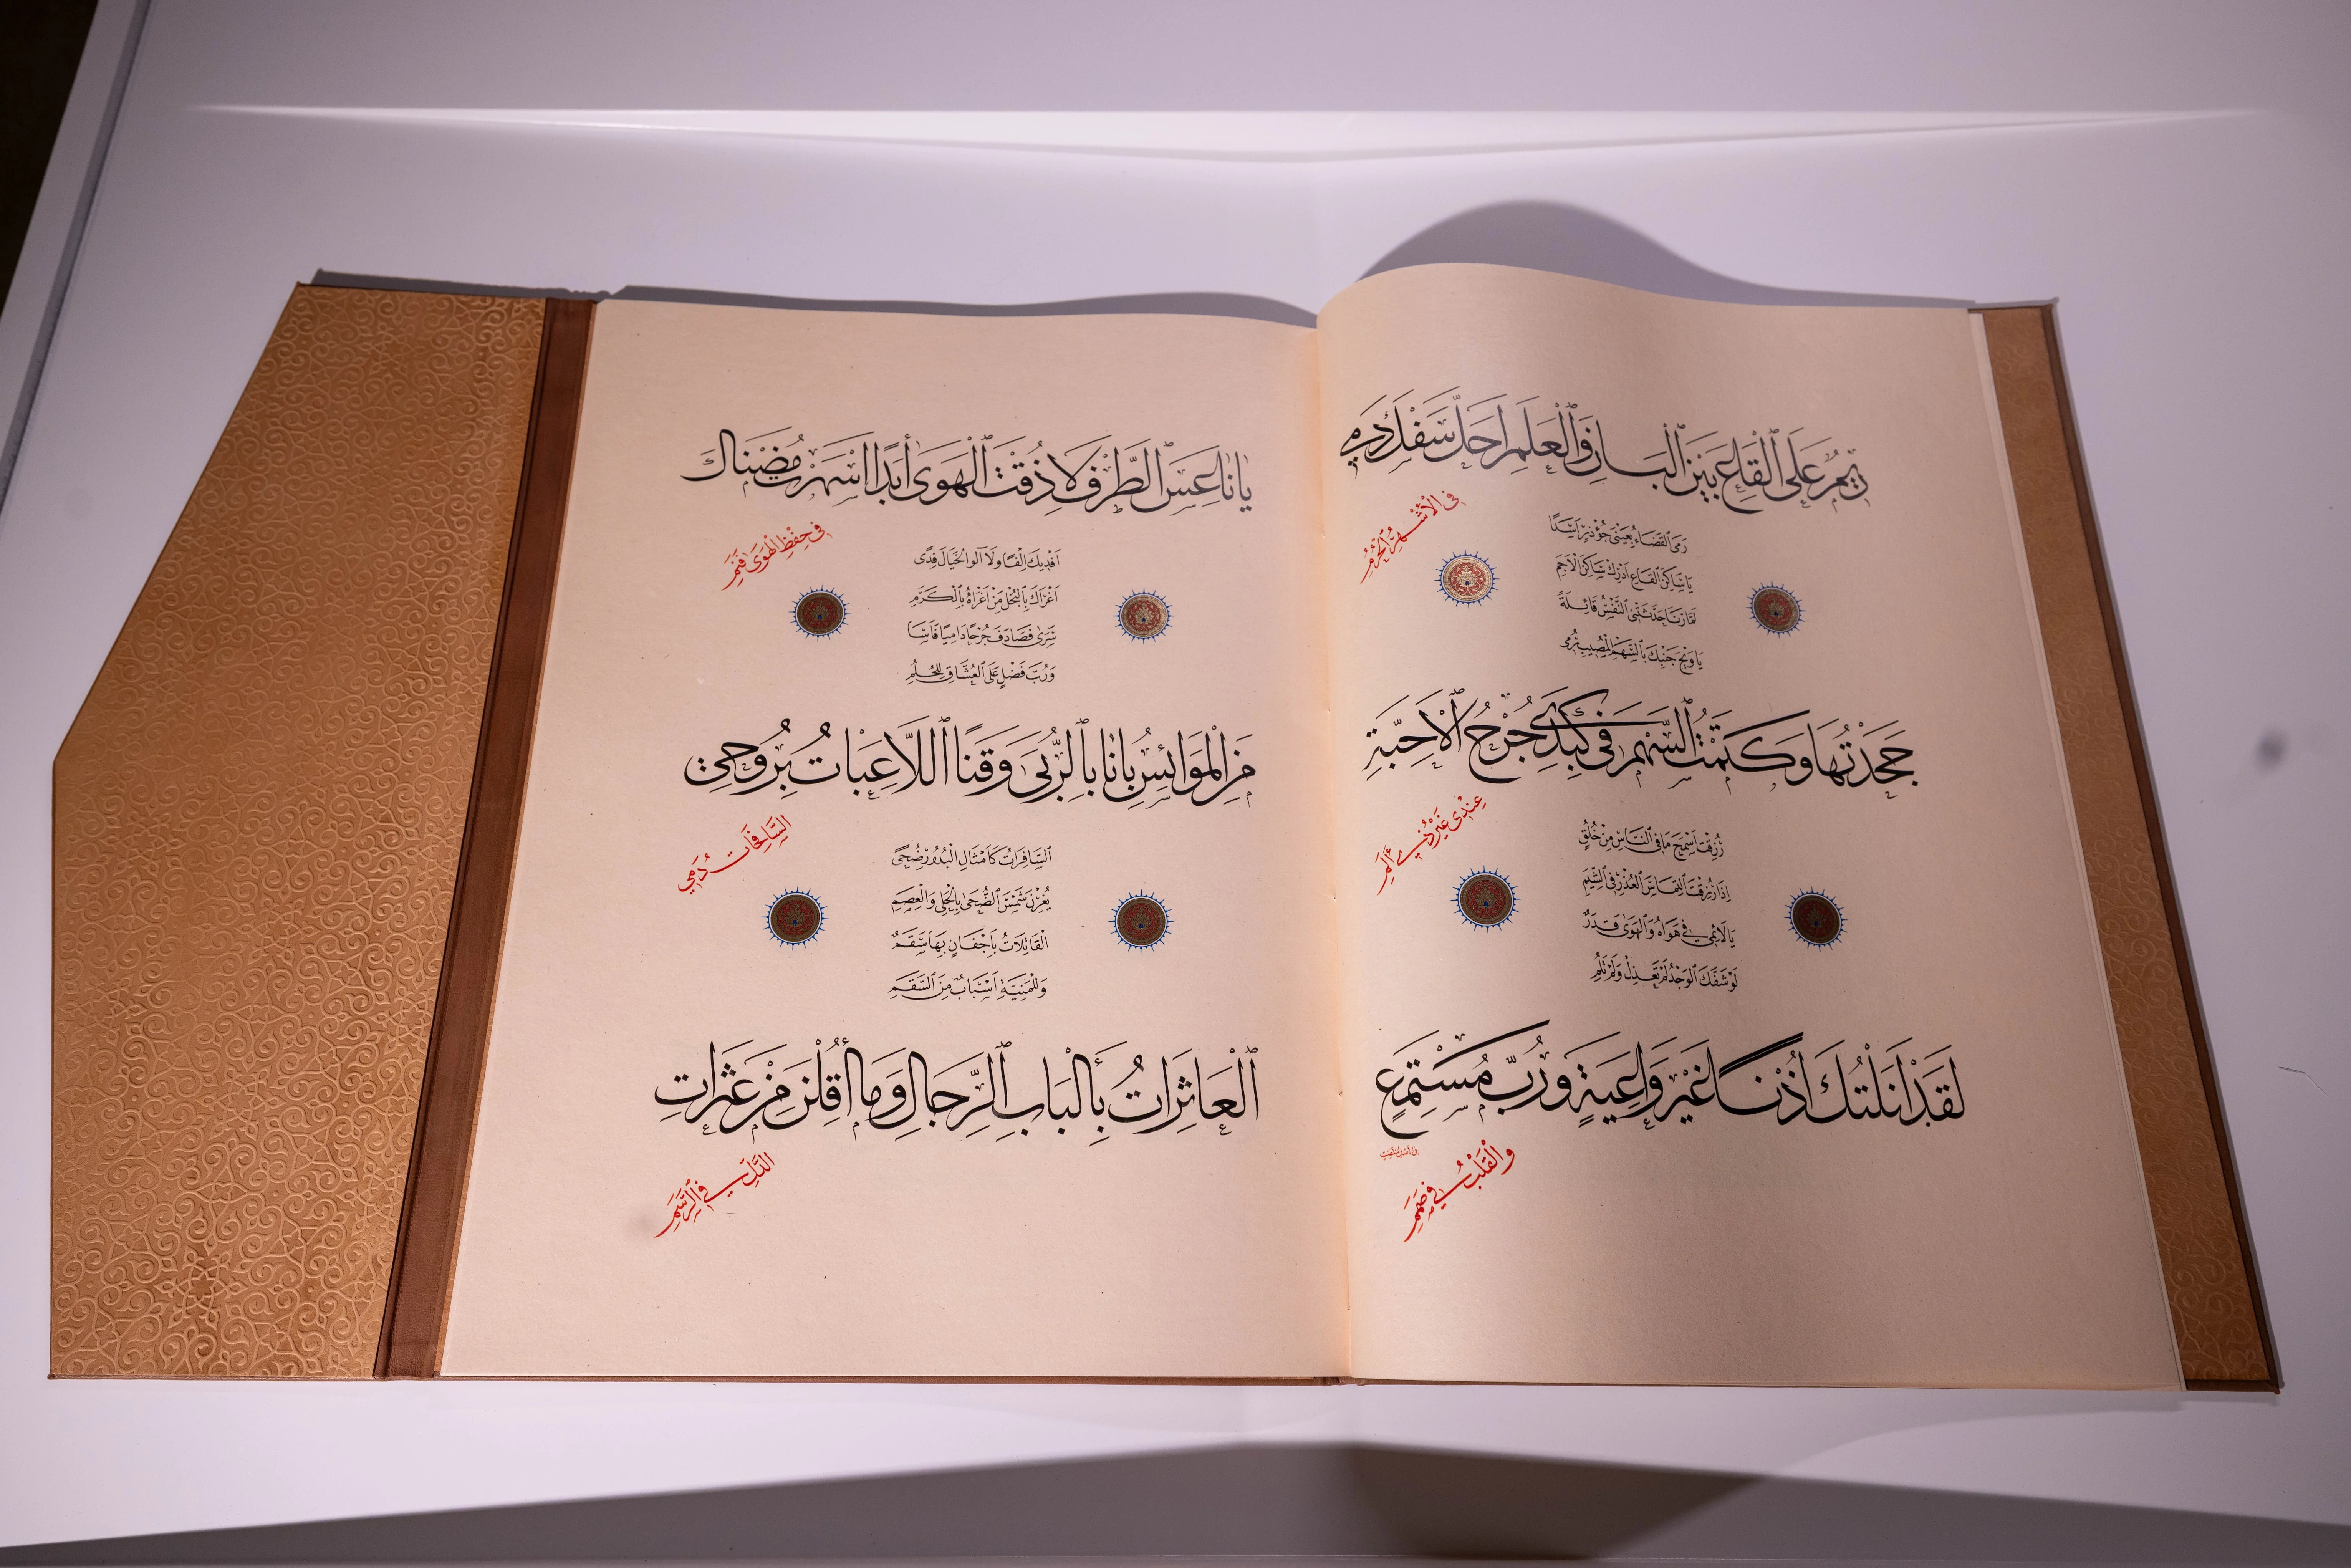 رِيمٌ عَلَى ٱلْقَاعِ بَيْنَ ٱلْبَانِ وَٱلْعَلَمِ اَحَلَّ سَفْكَ دَمِي
فِي الْاَشْهُرِ الْحُرُمِ
رَمَى ٱلْقَضَاءُ بِعَيْنَيْ جُؤْذَرٍ اَسَدًا
يَا سَاكِنَ ٱلْقَاعِ اَدْرِكْ سَاكِنَ الْاَجَمِ
لَمَّا رَنَا حَدَّثَتْنِي النَّفْسُ قَائِلَةً
يَا وَيْحَ جَنْبِكَ بِالسَّهْمِ الْمُصِيبِ رُمِي
جَحَدْتُهَا وَكَتَمْتُ ٱلسَّهْمَ فِي كَبِدِي جُرْحُ ٱلْاَحِبَّةِ
عِنْدِي غَيْرُ ذِي اَلَمِ
رُزِقْتَ اَسْمَحَ مَا فِي النَّاسِ مِنْ خُلُقٍ
اِذَا رُزِقْتَ الْتِمَاسَ الْعُذْرِ فِي الشِّيَمِ
يَا لَائِمِي فِي هَوَاهُ وَالْهَوَى قَدَرٌ
لَوْ شَفَّكَ الْوَجْدُ لَمْ تَعْذِلْ وَلَمْ تَلُمِ
لَقَدْ اَنَلْتُكَ اُذْنًا غَيْرَ وَاعِيَةٍ وَرُبَّ مُسْتَمِعٍ
وَالْقَلْبُ فِي صَمَمِ
يَا نَاعِسَ ٱلطَّرْفِ لَا ذُقْتَ ٱلْهَوَى أَبَدًا اَسْهَرْتَ مُضْنَاكَ
فِي حِفْظِ الْهَوَى فَنَمِ
اَفْدِيكَ اِلْفًا وَلَا آلُو الْخَيَالَ فِدًى
اَغْرَاكَ بِالْبُخْلِ مَنْ اَغْرَاهُ بِالْكَرَمِ
سَرَى فَصَادَفَ جُرْحًا دَامِيًا فَاَسَا
وَرُبَّ فَضْلٍ عَلَى ٱلْعُشَّاقِ لِلْحُلُمِ
مَنِ الْمَوَائِسُ بَانًا بِٱلرُّبَى وَقَنًا اَللَّاعِبَاتُ بِرُوحِي
السَّافِحَاتُ دَمِي
اَلسَّافِرَاتُ كَاَمْثَالِ الْبُدُورِ ضُحًى
يُغِرْنَ شَمْسَ ٱلضُّحَى بِالْحَلْيِ وَالْعِصَمِ
الْقَاتِلَاتُ بِاَجْفَانٍ بِهَا سَقَمٌ
وَلِلْمَنِيَّةِ اَسْبَابٌ مِنَ السَّقَمِ
ٱلْعَاثِرَاتُ بِأَلْبَابِ ٱلرِّجَالِ وَمَا أُقِلْنَ مِنْ عَثَرَاتِ
الدَّلِّ فِي الرَّسَمِ